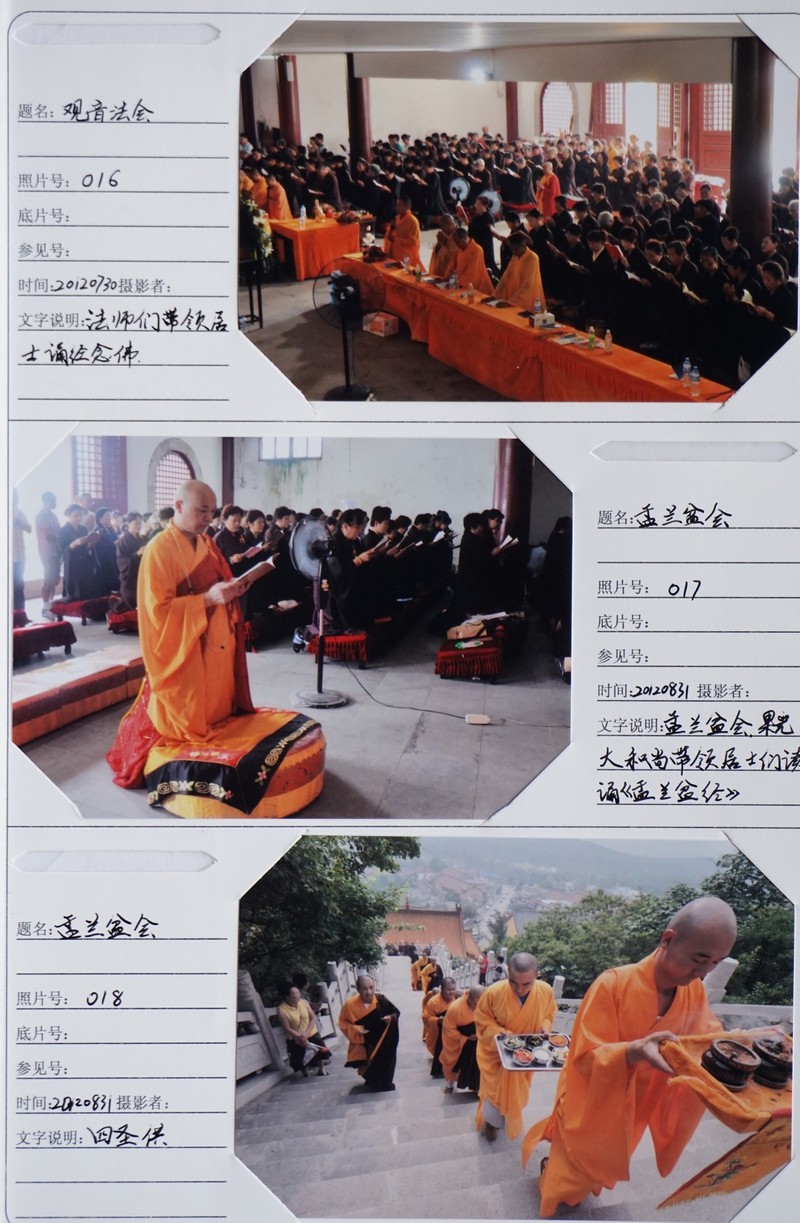 题名：观音法会
照片号：016
底片号：
参见号：
时间：20120730 摄影者：
文字说明：法师们带领居
士诵经念佛
题名：盂兰盆会
照片号：017
底片号：
参见号：
时间：20120831 摄影者：
文字说明：盂兰盆会，果光
大和尚带领居士们读
诵《盂兰盆经》
题名：盂兰盆会
照片号：018
底片号：
参见号：
时间：20120831 摄影者：
文字说明：四圣供